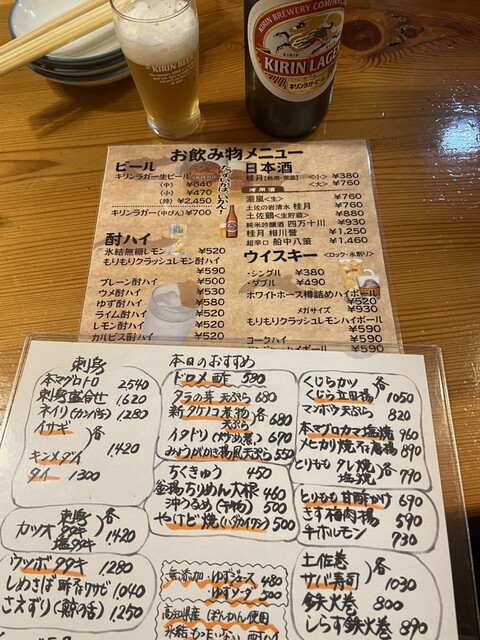 KIRIN BEER
KIRIN BREWERY COMPANY
KIRIN LAGER
キリンラガービール
お飲み物メニュー
ビール
キリンラガー生ビール
(中) ¥640
(小) ¥470
(時) ¥2,450
キリンラガー(中びん) ¥700
たまるか、うまいがいかん！
酎ハイ
氷結無糖レモン ¥520
もりもりクラッシュレモン酎ハイ
¥590
プレーン酎ハイ ¥500
ウメ酎ハイ ¥530
ゆず酎ハイ ¥580
ライム酎ハイ ¥520
レモン酎ハイ ¥520
カルピス酎ハイ ¥520
日本酒
桂月 <小> ¥380
<大> ¥760
冷用酒
瀧嵐<生> ¥760
土佐の岩清水 桂月 ¥760
土佐鶴<生貯蔵> ¥880
純米吟醸酒 四万十川 ¥930
桂月 相川誉 ¥1,250
超辛口 船中八策 ¥1,460
ウイスキー <ロック・水割り>
・シングル ¥380
・ダブル ¥490
ホワイトホース樽詰めハイボール
¥520
メガサイズ ¥930
もりもりクラッシュレモンハイボール
¥590
コークハイ ¥590
刺身
本マグロトロ 2540
刺身盛合せ 1620
ネイリ(カンパチ子) 1280
イサギ
キンメダイ 各 1420
タイ 1300
カツオ 刺身 タタキ 塩タタキ 各 1420
ウツボタタキ 1280
しめさば 酢 or ワサビ 1040
さえずり(鯨の舌) 1250
本日のおすすめ
ドロメ酢 580
タラの芽 天ぷら 680
新タケノコ 煮物 天ぷら 各 680
イタドリ(炒め煮) 690
みょうがちき揚風天ぷら 550
ちくきゅう 450
釜揚ちりめん大根 460
沖うるめ(干物) 500
やけど焼(ハダカイワシ) 500
無添加・ゆずジュース 480
ゆずソーダ 500
高知県産 ぽんかん使用
くじらカツ
くじら立田揚 各 1050
マンボウ天ぷら 820
本マグロカマ塩焼 960
メヒカリ焼 or 唐揚 890
とりもも タレ焼 塩焼 各 790
とりもも甘酢がけ 690
ささ身梅肉揚 590
牛ホルモン 730
土佐巻
サバ寿司 各 1030
鉄火巻 800
しらす鉄火巻 890